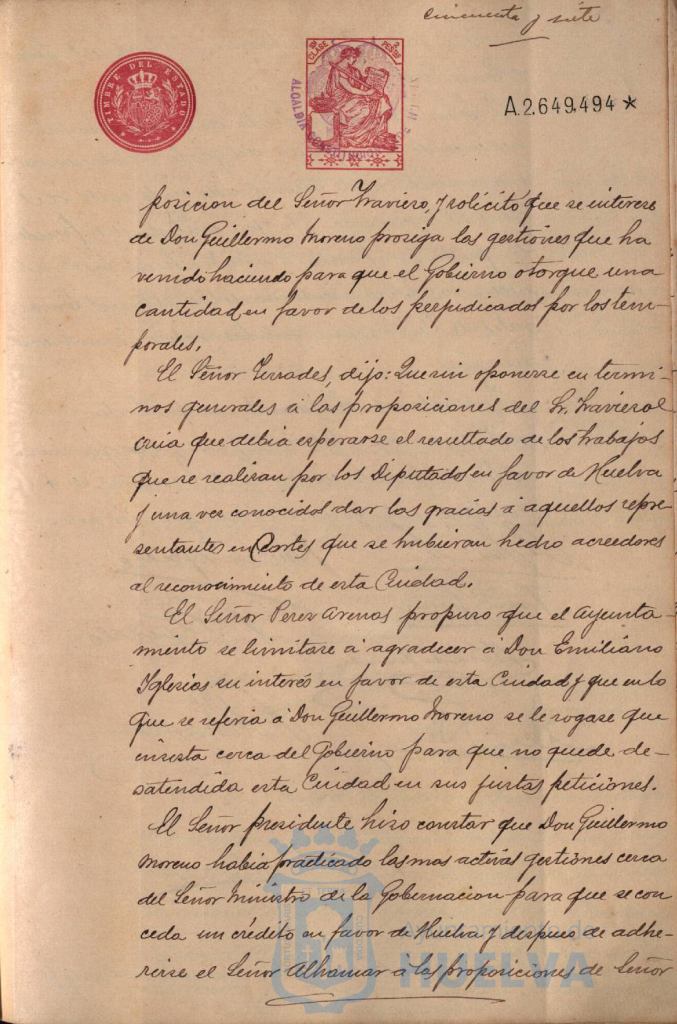 cincuenta y siete
TIMBRE DEL ESTADO
CLASE
A.2.649.494 *
posicion del Señor Travieso, y solicitó que se interese
de Don Guillermo Moreno prosiga las gestiones que ha
venido haciendo para que el Gobierno otorgue una
cantidad en favor de los perjudicados por los tem-
porales.
El Señor Terrades, dijo: Que sin oponerse en termi-
nos generales á las proposiciones del Sr. Travieso él
creia que debia esperarse el resultado de los trabajos
que se realizan por los Diputados en favor de Huelva
y una vez conocidos dar las gracias á aquellos repre-
sentantes en Cortes que se hubieran hecho acreedores
al reconocimiento de esta Ciudad.
El Señor Perez Arenas propuso que el Ayunta-
miento se limitase á agradecer á Don Emiliano
Iglesias su interés en favor de esta Ciudad y que en lo
que se referia á Don Guillermo Moreno se le rogase que
insista cerca del Gobierno para que no quede de-
satendida esta Ciudad en sus justas peticiones.
El Señor presidente hizo constar que Don Guillermo
Moreno habia practicado las mas activas gestiones cerca
del Señor Ministro de la Gobernacion para que se con
ceda un crédito en favor de Huelva y despues de adhe-
rirse el Señor Alhamar á las proposiciones de Señor
HUELVA